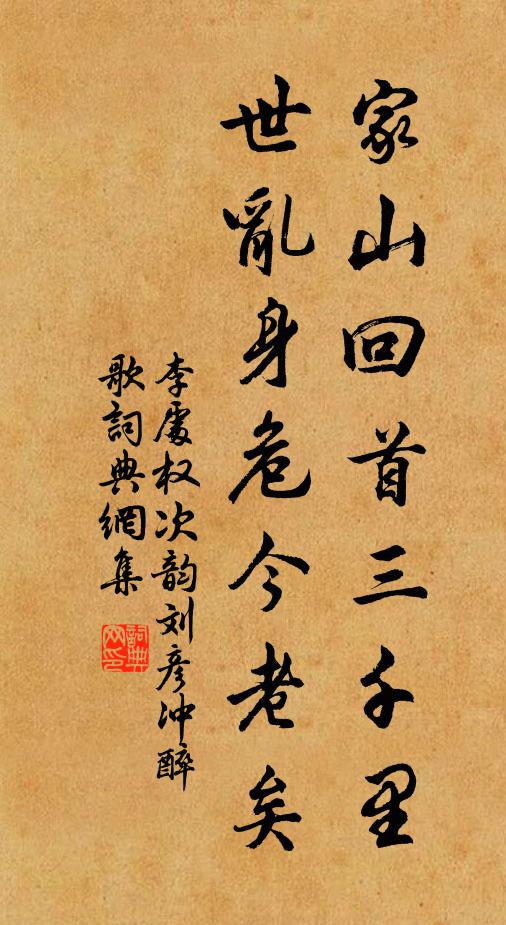 家山回首三千里
世亂身危今老矣
李處权次韵刘彦冲醉
歌詞典網集
詞典网印